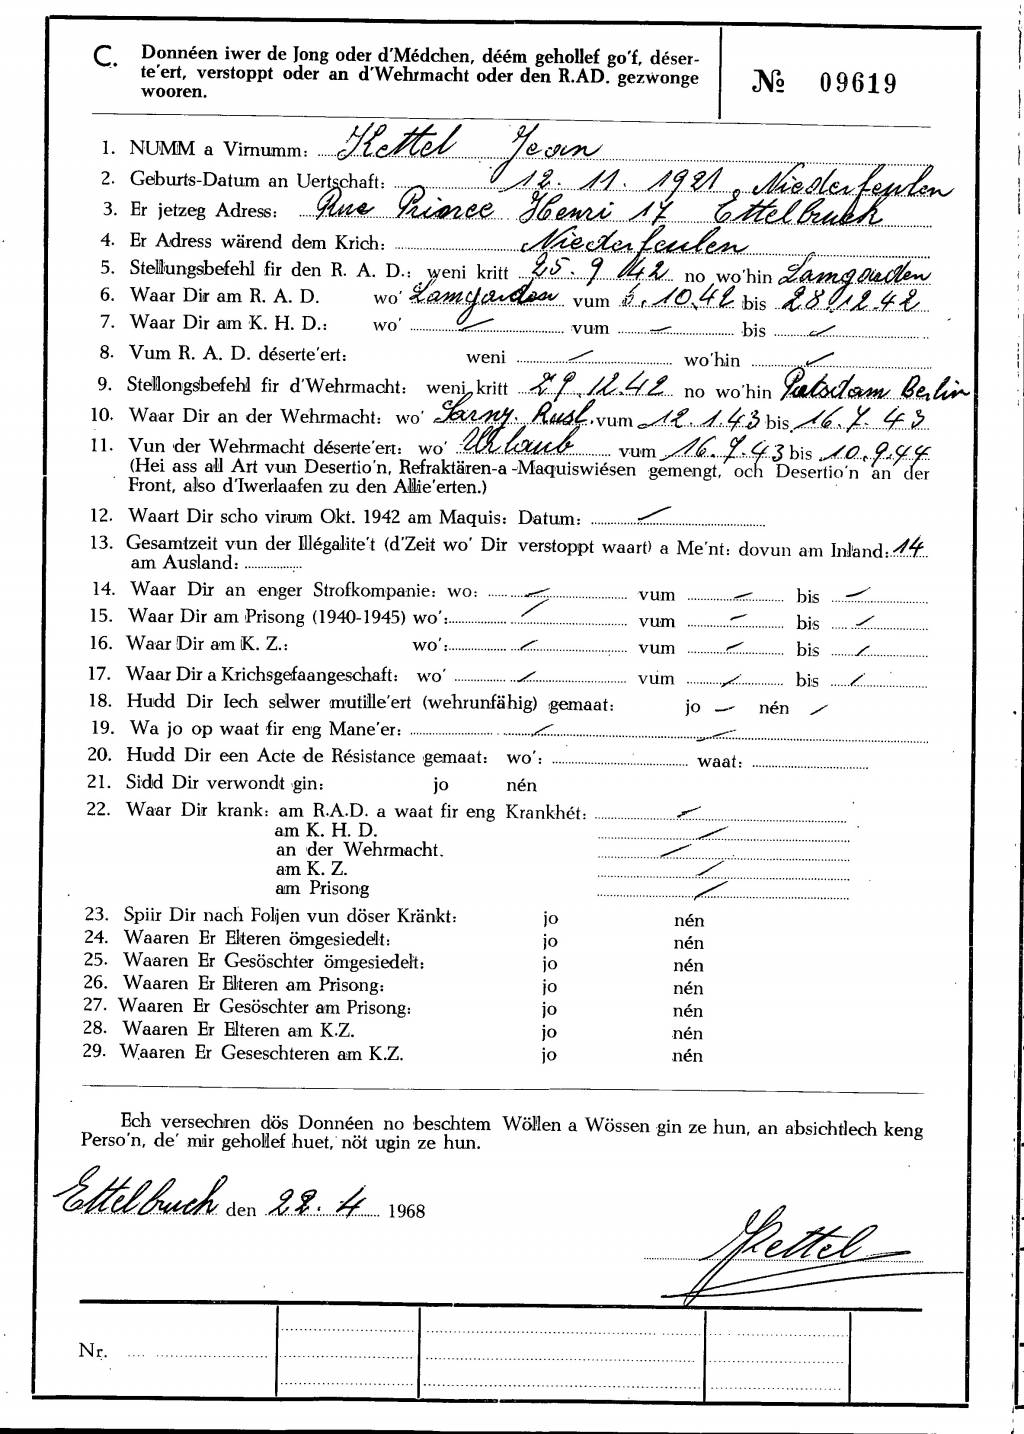 C. Donnéen iwer de Jong oder d'Médchen, déém gehollef go'f, déser-
te'ert, verstoppt oder an d'Wehrmacht oder den R.AD. gezwonge
wooren.
№ 09619
1. NUMM a Virnumm: Kettel Jean
2. Geburts-Datum an Uertschaft: 12. 11. 1921, Niederfeulen
3. Er jetzeg Adress: Rue Prince Henri 17 Ettelbruck
4. Er Adress wärend dem Krich: Niederfeulen
5. Stellungsbefehl fir den R. A. D.: weni kritt 25. 9. 42 no wo'hin Lamgarden
6. Waar Dir am R. A. D. wo' Lamgarden vum 5. 10. 42 bis 28. 12. 42
7. Waar Dir am K. H. D.: wo' / vum — bis /
8. Vum R. A. D. déserte'ert: weni / wo'hin /
9. Stellongsbefehl fir d'Wehrmacht: weni kritt 29. 12. 42 no wo'hin Potsdam Berlin
10. Waar Dir an der Wehrmacht: wo' Sarny. Rusl. vum 12. 1. 43 bis 16. 7. 43
11. Vun der Wehrmacht déserte'ert: wo' Urlaub vum 16. 7. 43 bis 10. 9. 44
(Hei ass all Art vun Desertio'n, Refraktären-a-Maquiswiésen gemengt, och Desertio'n an der
Front, also d'Iwerlaafen zu den Allie'erten.)
12. Waart Dir scho virum Okt. 1942 am Maquis: Datum: /
13. Gesamtzeit vun der Illégalite't (d'Zeit wo' Dir verstoppt waart) a Me'nt: dovun am Inland: 14
am Ausland:
14. Waar Dir an enger Strofkompanie: wo: — vum — bis —
15. Waar Dir am Prisong (1940-1945) wo': / vum — bis /
16. Waar Dir am K. Z.: wo': / vum / bis /
17. Waar Dir a Krichsgefaangeschaft: wo' / vum / bis /
18. Hudd Dir Iech selwer mutille'ert (wehrunfähig) gemaat: jo — nén /
19. Wa jo op waat fir eng Mane'er: / /
20. Hudd Dir een Acte de Résistance gemaat: wo': waat:
21. Sidd Dir verwondt gin: jo nén
22. Waar Dir krank: am R.A.D. a waat fir eng Krankhét: /
am K. H. D. /
an der Wehrmacht. /
am K. Z. /
am Prisong /
23. Spiir Dir nach Foljen vun döser Kränkt: jo nén
24. Waaren Er Elteren ömgesiedelt: jo nén
25. Waaren Er Gesöschter ömgesiedelt: jo nén
26. Waaren Er Elteren am Prisong: jo nén
27. Waaren Er Gesöschter am Prisong: jo nén
28. Waaren Er Elteren am K.Z. jo nén
29. Waaren Er Geseschteren am K.Z. jo nén
Ech versechren dös Donnéen no beschtem Wöllen a Wössen gin ze hun, an absichtlech keng
Perso'n, de' mir gehollef huet, nöt ugin ze hun.
Ettelbruck den 22. 4 1968
Kettel
Nr.